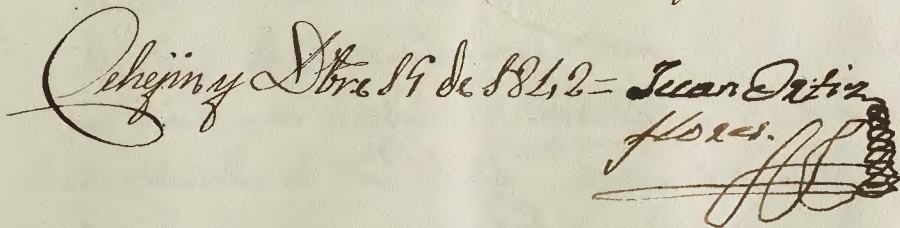 Cehejin y Dbre 19 de 1842 = Juan Ortiz
flores.